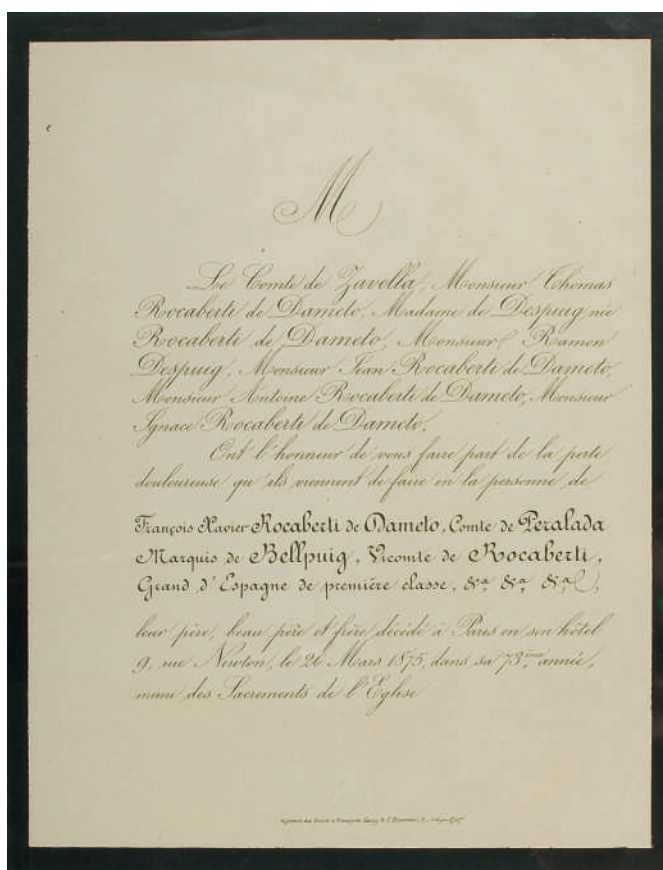 M
Le Comte de Zavella, Monsieur Thomas
Rocaberti de Dameto, Madame de Despuig née
Rocaberti de Dameto, Monsieur Ramon
Despuig, Monsieur Jean Rocaberti de Dameto,
Monsieur Antoine Rocaberti de Dameto, Monsieur
Ignace Rocaberti de Dameto.
Ont l'honneur de vous faire part de la perte
douloureuse qu'ils viennent de faire en la personne de
François Xavier Rocaberti de Dameto, Comte de Peralada
Marquis de Bellpuig, Vicomte de Rocaberti,
Grand d'Espagne de première classe, &a, &a, &a,
leur père, beau père et frère décédé à Paris en son hôtel
9, rue Newton, le 26 Mars 1875, dans sa 73ème année,
muni des Sacrements de l'Eglise